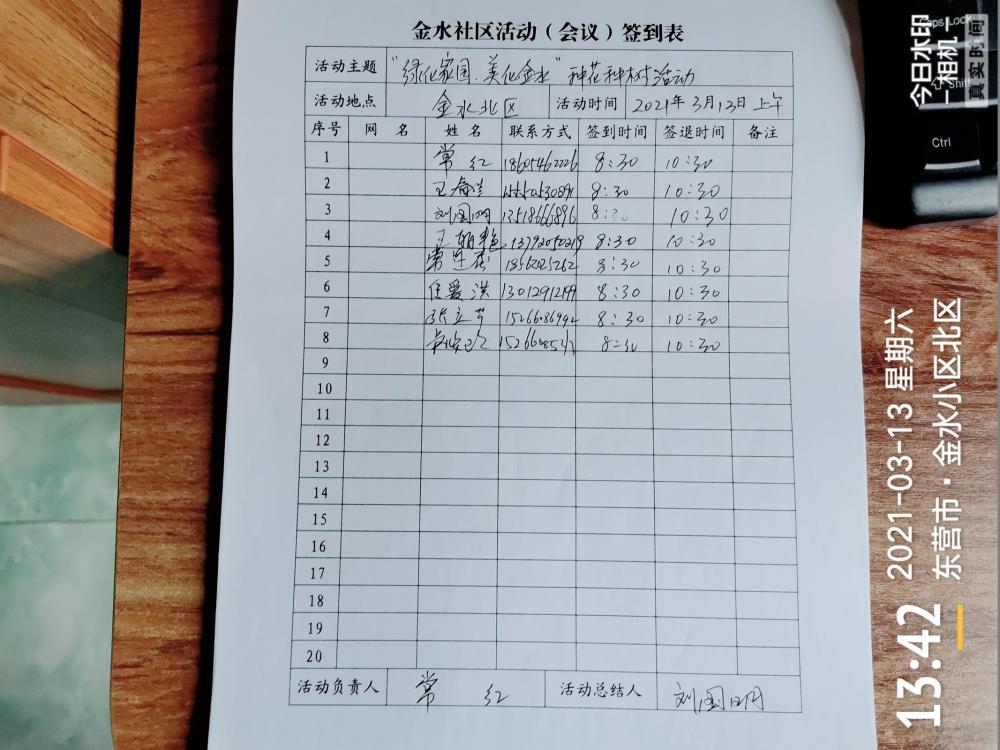 金水社区活动（会议）签到表
活动主题 "绿化家园.美化金水"种花种树活动
活动地点 金水北区 活动时间 2021年3月13日上午
序号 网名 姓名 联系方式 签到时间 签退时间 备注
1 常红 18605462226 8:30 10:30
2 8:30 10:30
3 刘国明 13518666896 8:30 10:30
4 王 13792050219 8:30 10:30
5 常 8:30 10:30
6 任爱洪 8:30 10:30
7 张立芹 8:30 10:30
8 8:30 10:30
9
10
11
12
13
14
15
16
17
18
19
20
活动负责人 常红 活动总结人 刘国明
今日水印
相机
真实时间
Caps Lock
Shift
Ctrl
13:42
2021-03-13 星期六
东营市·金水小区北区